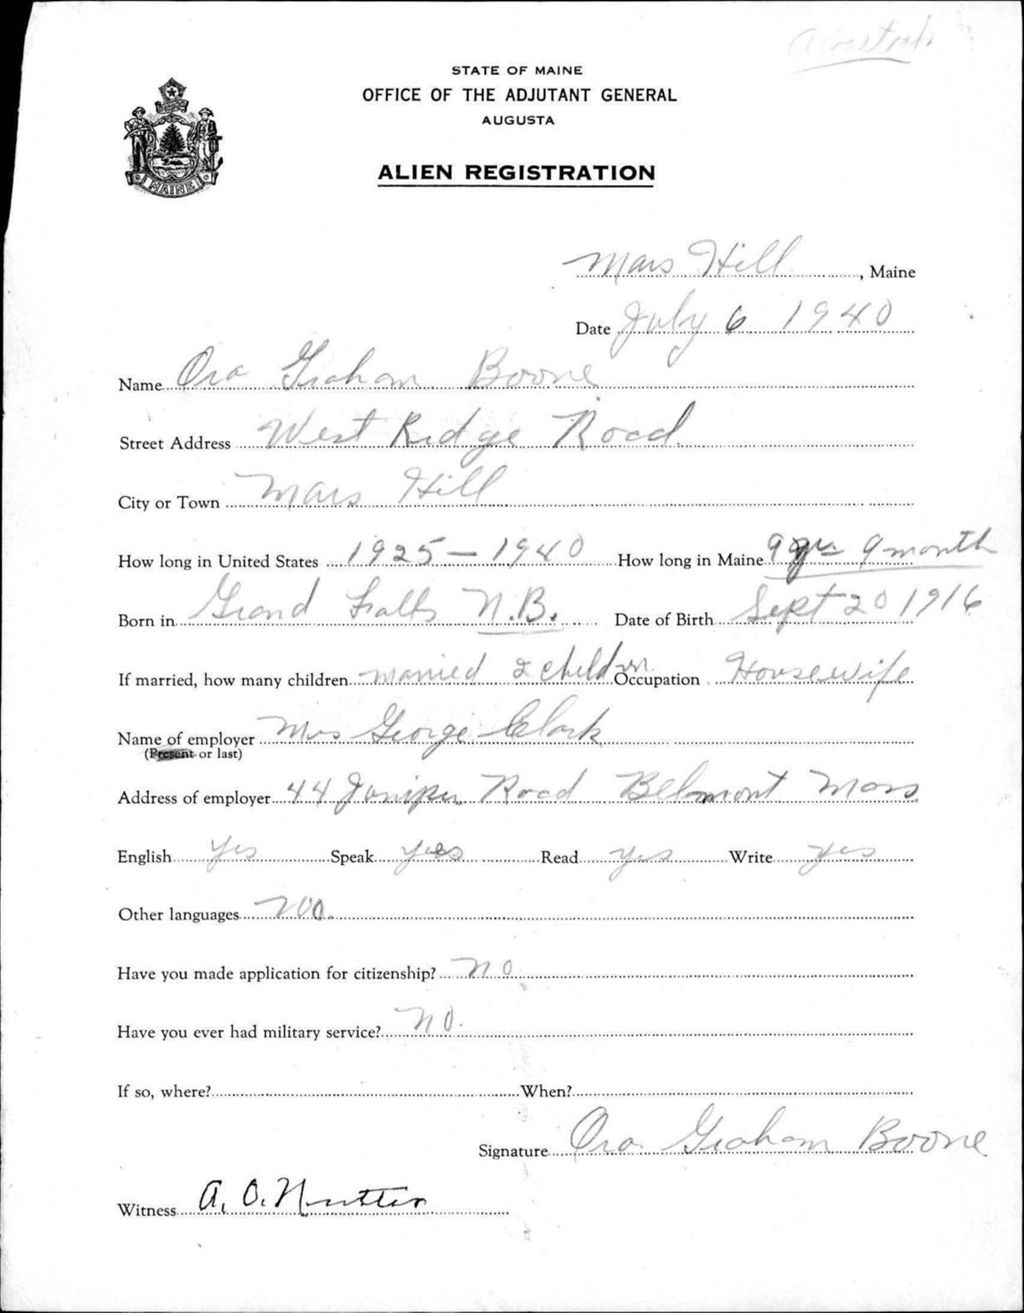 Aroostook
STATE OF MAINE
OFFICE OF THE ADJUTANT GENERAL
AUGUSTA
ALIEN REGISTRATION
MAINE
Mars Hill, Maine
Date July 6 1940
Name Ora Graham Boone
Street Address West Ridge Road
City or Town Mars Hill
How long in United States 1925 - 1940 How long in Maine 9 yrs 9 month
Born in Grand Falls N.B. Date of Birth Sept 20 1916
If married, how many children married 2 children Occupation Housewife
Name of employer Mrs George Clark
(Present or last)
Address of employer 44 Juniper Road Belmont Mass
English Yes Speak yes Read yes Write yes
Other languages No.
Have you made application for citizenship? No
Have you ever had military service? No.
If so, where? When?
Signature Ora Graham Boone
Witness A. O. Nutter